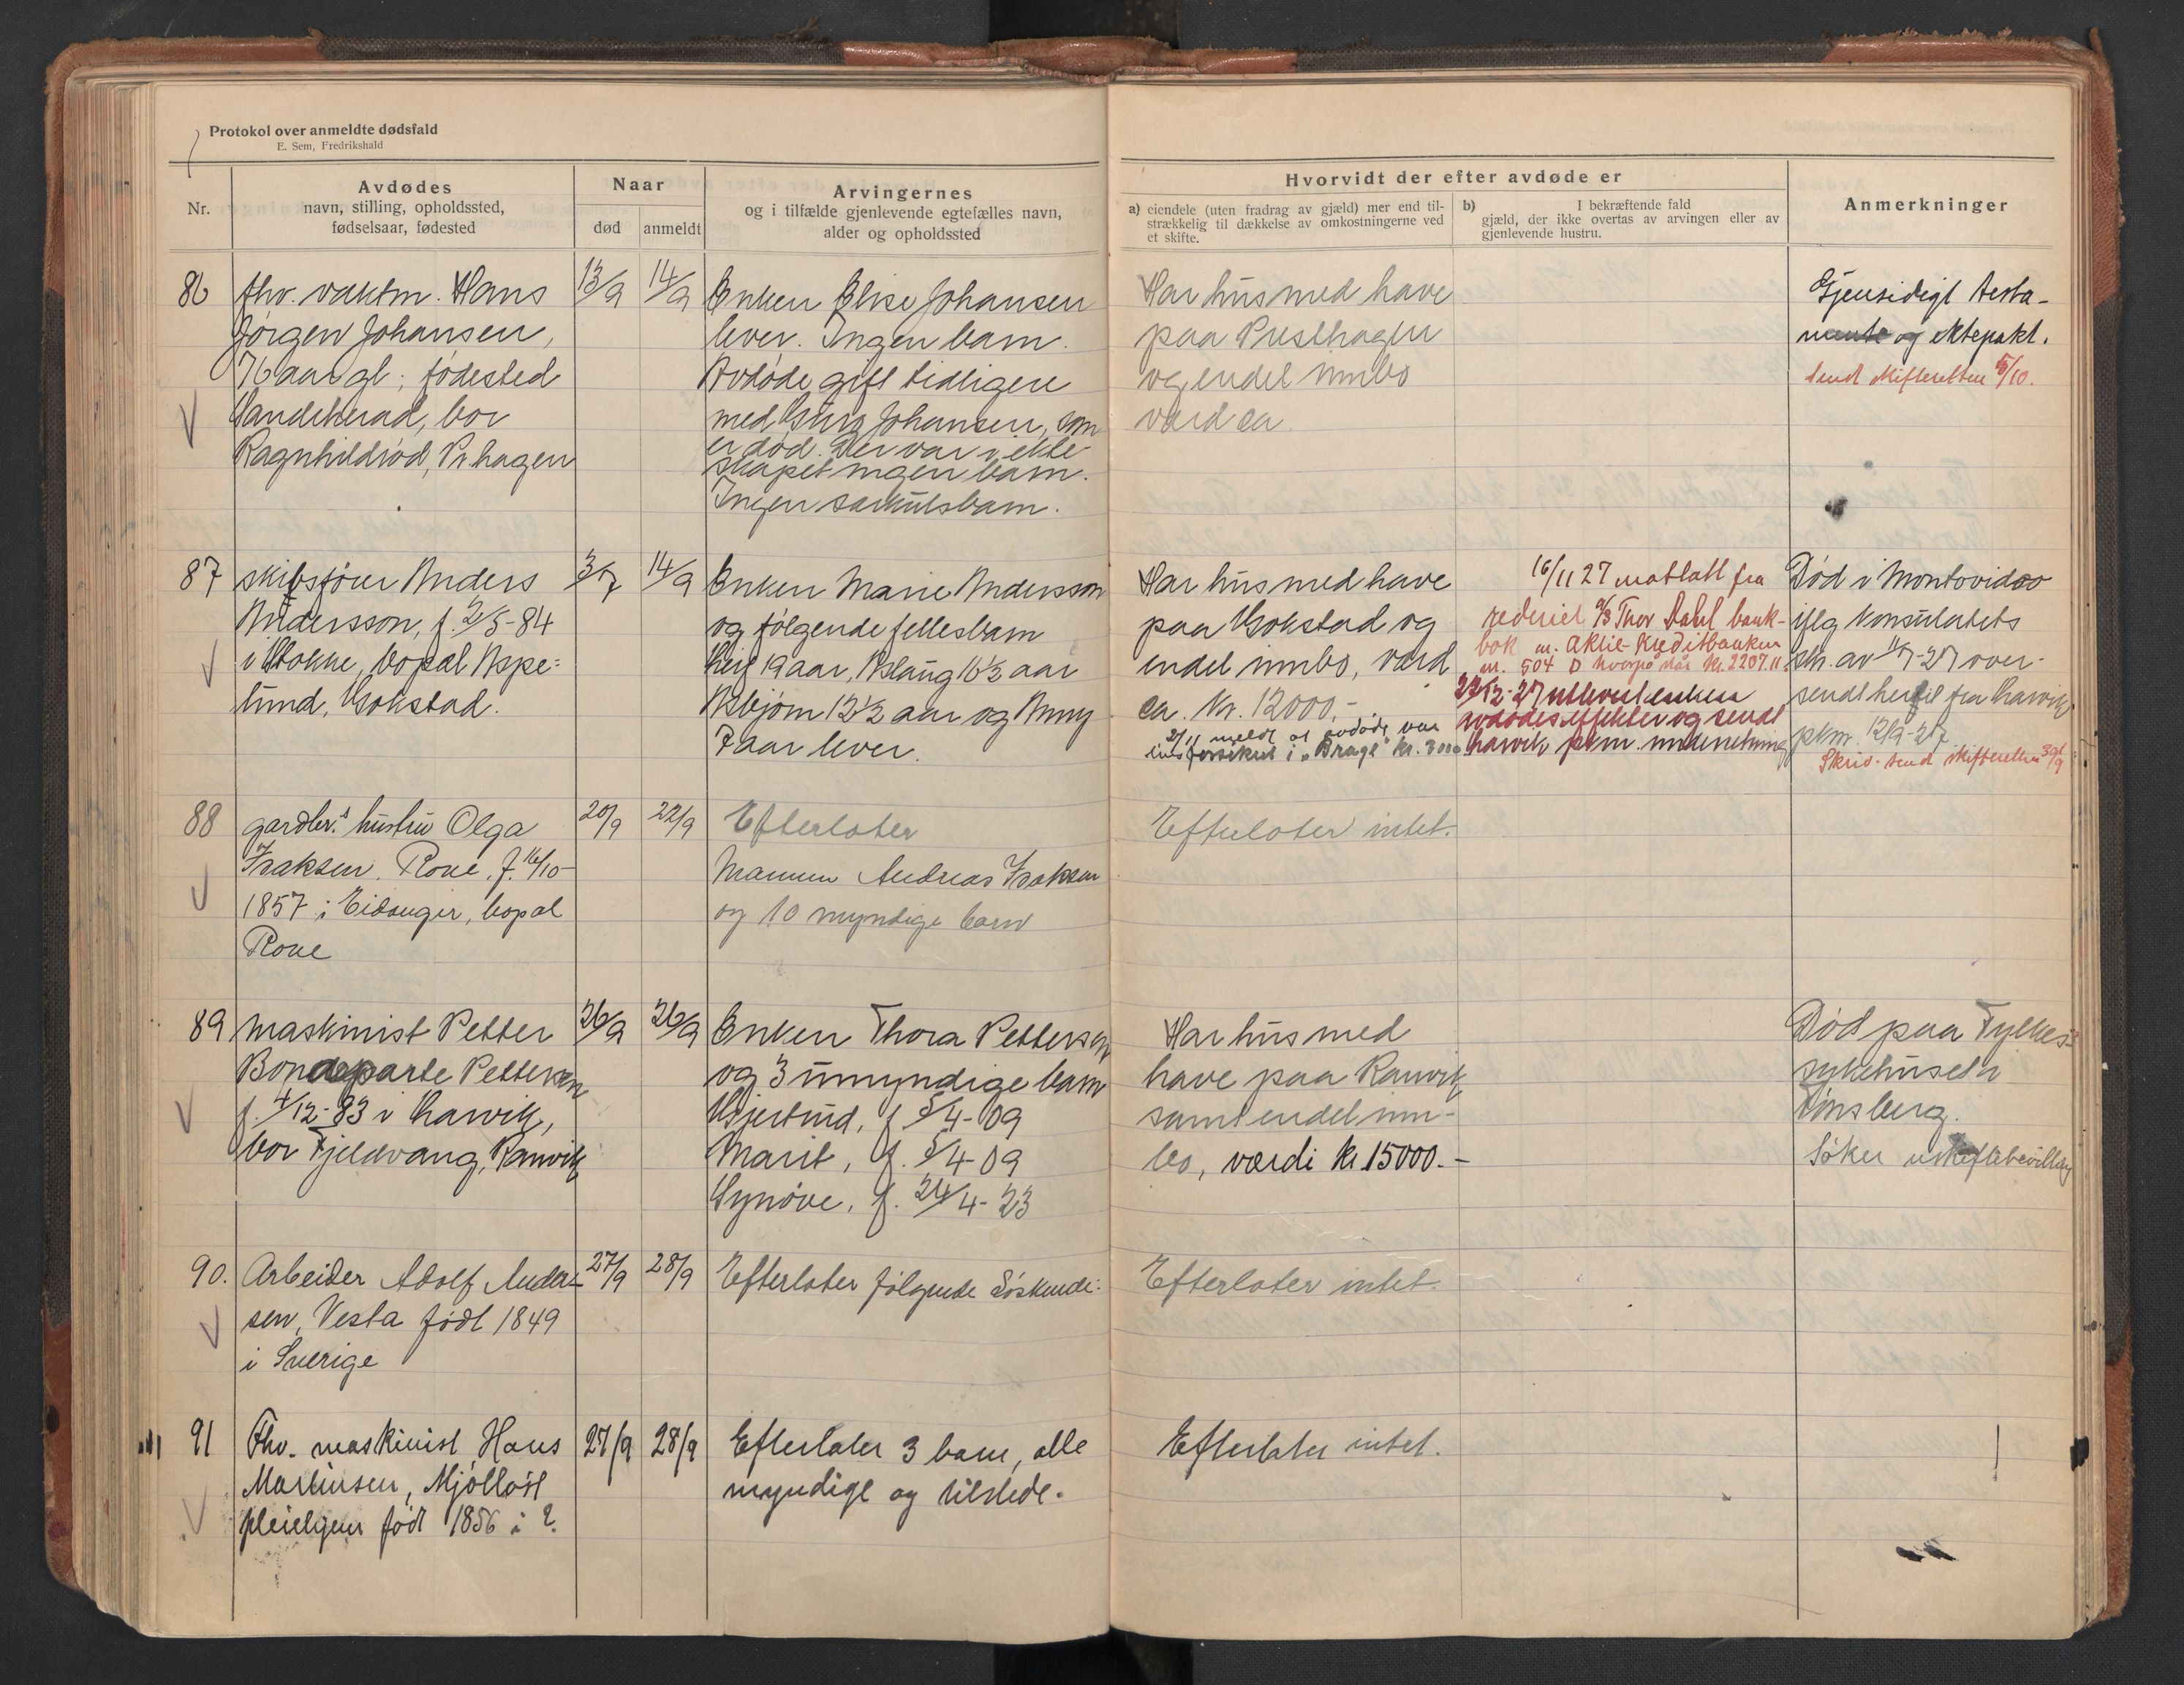 Protokol over anmeldte dødsfald
E. Sem, Fredrikshald
Nr.
Avdødes
navn, stilling, opholdssted,
fødselsaar, fødested
Naar
død
anmeldt
Arvingernes
og i tilfælde gjenlevende egtefælles navn,
alder og opholdssted
Hvorvidt der efter avdøde er
a) eiendele (uten fradrag av gjæld) mer end til-
strækkelig til dækkelse av omkostningerne ved
et skifte.
b) I bekræftende fald
gjæld, der ikke overtas av arvingen eller av
gjenlevende hustru.
Anmerkninger
86
fhv. vaktm. Hans
Jørgen Johansen,
76 aar gl; fødested
Sandeherad, bor
Ragnhildrød, Pr.hagen
13/9
14/9
Enken Elise Johansen
lever. Ingen barn.
Avdøde gift tidligere
med Gurg Johansen, som
er død. Der var i ekte-
skapet ingen barn.
Ingen særkulsbarn.
Har hus med have
paa Presthagen
og endel innbo
værd ca.
Gjensidigt testa-
mente og ektepakt.
Sendt skifteretten 5/10.
87
skibsfører Anders
Andersson, f. 2/5-84
i Stokke, bopæl Aspe-
lund, Gokstad.
3/7
14/9
Enken Marie Andersson
og følgende fellesbarn
Leif 19 aar, Aslaug 16½ aar
Asbjørn 12½ aar og Anny
7 aar lever.
Har hus med have
paa Gokstad og
endel innbo, værd
ca. kr. 12000,-
2/11 meldt at avdøde var
livsforsikret i "Brage" kr. 3000
16/11 27 mottatt fra
rederiet A/S Thor Dahl bank-
bok m. Aktie-Kreditbanken
nr. 504 D hvorpå står kr. 2207.11
22/12-27 utlevert enken
avdødes effekter og sendt
Larvik pkm. underretning
Død i Montevideo
iflg konsulatets
skr. av 11/7-27 over-
sendt hertil fra Larvik
pkm. 12/9-27
Skriv. sendt skifteretten 30/9
88
gardbr.s hustru Olga
Isaksen, Rove, f. 16/10-
1857 i Eidanger, bopæl
Rove
20/9
22/9
Efterlater
Mannen Andreas Isaksen
og 10 myndige barn
Efterlater intet.
89
Maskinist Petter
Bondeparte Pettersen
f. 4/12-83 i Larvik,
bor Fjeldvang, Ranvik
26/9
26/9
Enken Thora Pettersen
og 3 umyndige barn
Gjertrud, f. 5/4-09
Marit, f. 5/4-09
Synøve, f. 24/4-23
Har hus med
have paa Ranvik
samt endel inn-
bo, værdi kr 15000.-
Død paa Fylkes-
sykehuset i
Tønsberg.
Søker uskiftebevilling
90.
Arbeider Adolf Ander-
sen, Vesta født 1849
i Sverige
27/9
28/9
Efterlater følgende Søskende:
Efterlater intet.
91
Fhv. maskinist Hans
Martinsen, Mjølløst
pleiehjem født 1856 i ?
27/9
28/9
Efterlater 3 barn, alle
myndige og tilstede.
Efterlater intet.